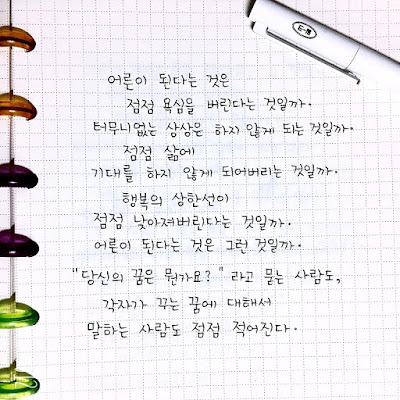 어른이 된다는 것은
점점 욕심을 버린다는 것일까.
터무니없는 상상은 하지 않게 되는 것일까.
점점 삶에
기대를 하지 않게 되어버리는 것일까.
행복의 상한선이
점점 낮아져버린다는 것일까.
어른이 된다는 것은 그런 것일까.
"당신의 꿈은 뭔가요?"라고 묻는 사람도,
각자가 꾸는 꿈에 대해서
말하는 사람도 점점 적어진다.